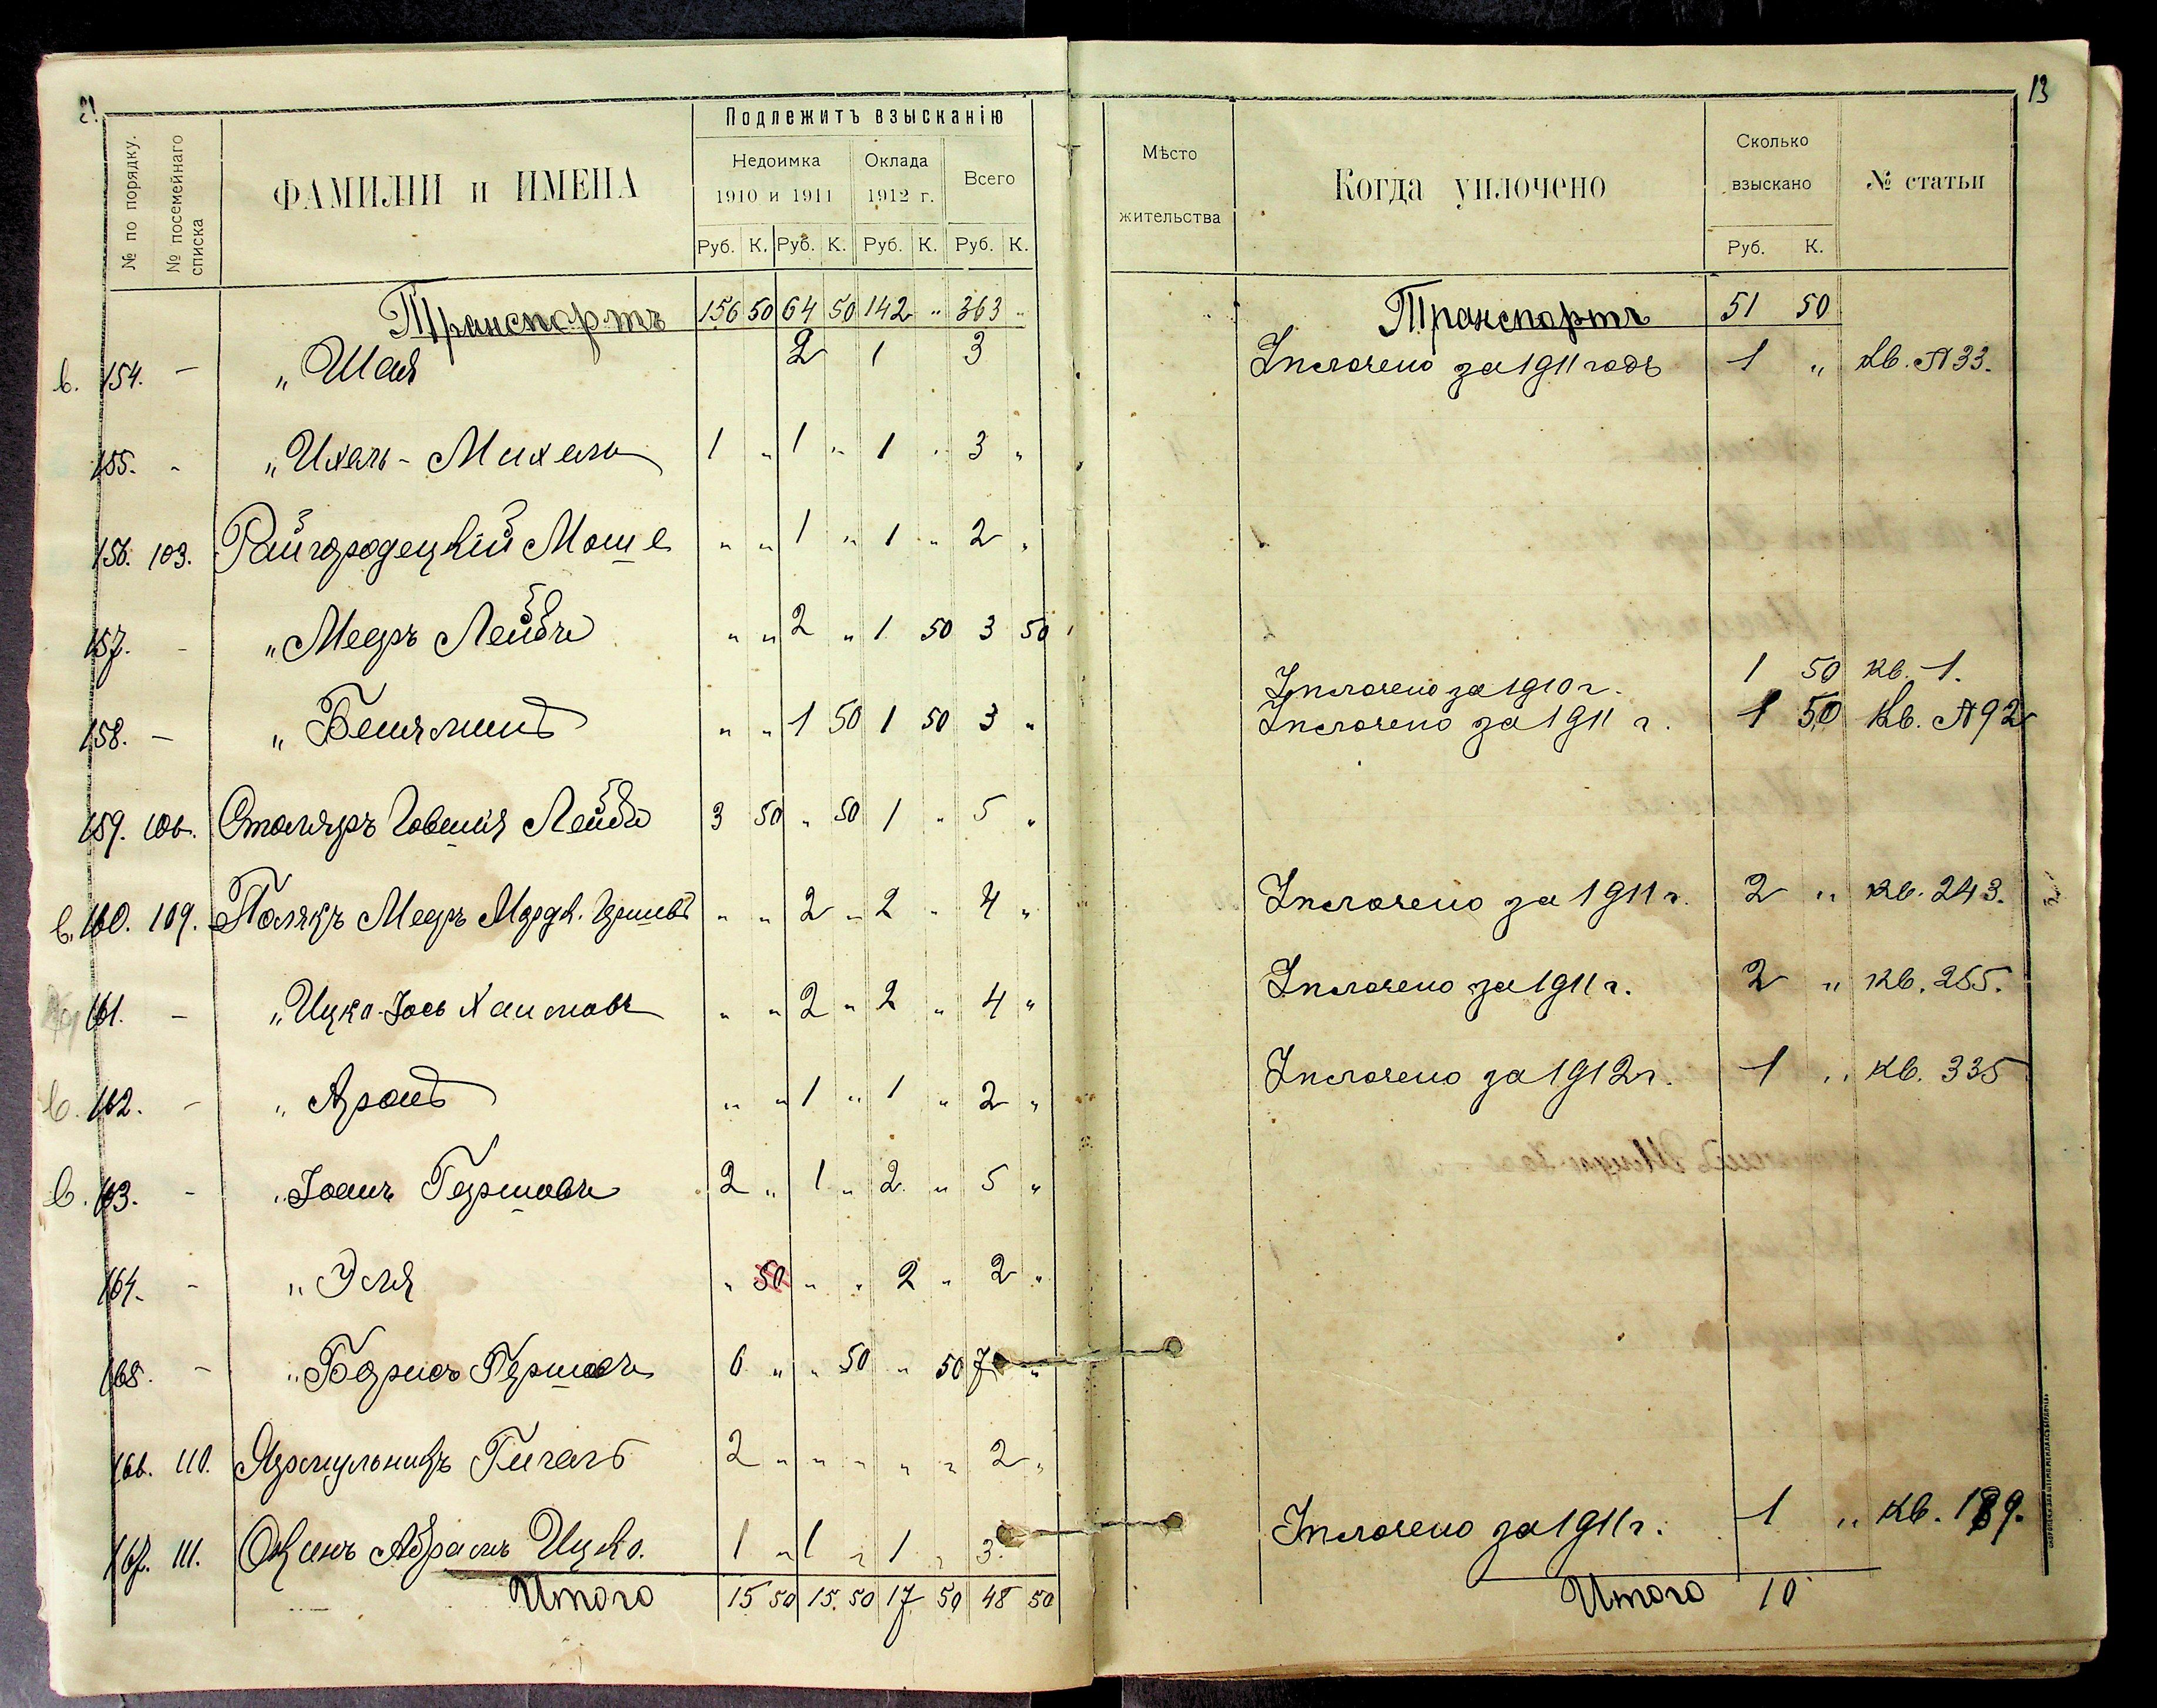 13
№ по порядку.
№ посемейнаго списка
ФАМИЛІИ и ИМЕНА
Подлежитъ взысканію
Недоимка 1910 и 1911
Оклада 1912 г.
Всего
Руб. К. Руб. К. Руб. К. Руб. К.
Мѣсто жительства
Когда уплочено
Сколько взыскано
Руб. К.
№ статьи
Транспортъ 156 50 64 50 142 " 363 " Транспортъ 51 50
в. 154. - " Шая 2 1 3 Уплочено за 1911 годъ 1 " Кв. № 33.
155. - " Ихель-Михель 1 " 1 " 1 " 3 "
156. 103. Райгородецкій Мошe " " 1 " 1 " 2 "
157. - " Мееръ Лейбъ " " 2 " 1 50 3 50
Уплочено за 1910 г. 1 50 кв. 1.
158. - " Беняминъ " " 1 50 1 50 3 " Уплочено за 1911 г. 1 50 Кв. № 92
159. 106. Столяръ Овшія Лейбъ 3 50 " 50 1 " 5 "
в. 160. 109. Полякъ Мееръ Мордк. Гершовъ " " 2 " 2 " 4 " Уплочено за 1911 г. 2 " кв. 243.
161. - " Ицко-Іось Хаимовъ " " 2 " 2 " 4 " Уплочено за 1911 г. 2 " кв. 255.
в. 162. - " Аронъ " " 1 " 1 " 2 " Уплочено за 1912 г. 1 " кв. 335
в. 163. - " Гершовъ 2 " 1 " 2 " 5 "
164. - " Эля " 50 " " 2 " 2 "
165. - " Борисъ Гершовъ 6 " " 50 " 50 7 "
166. 110. Ярмульникъ 2 " " " " " 2 "
167. 111. Абрамъ Ицко. 1 " 1 " 1 " 3 Уплочено за 1911 г. 1 " кв. 189.
Итого 15 50 15. 50 17 50 48 50 Итого 10